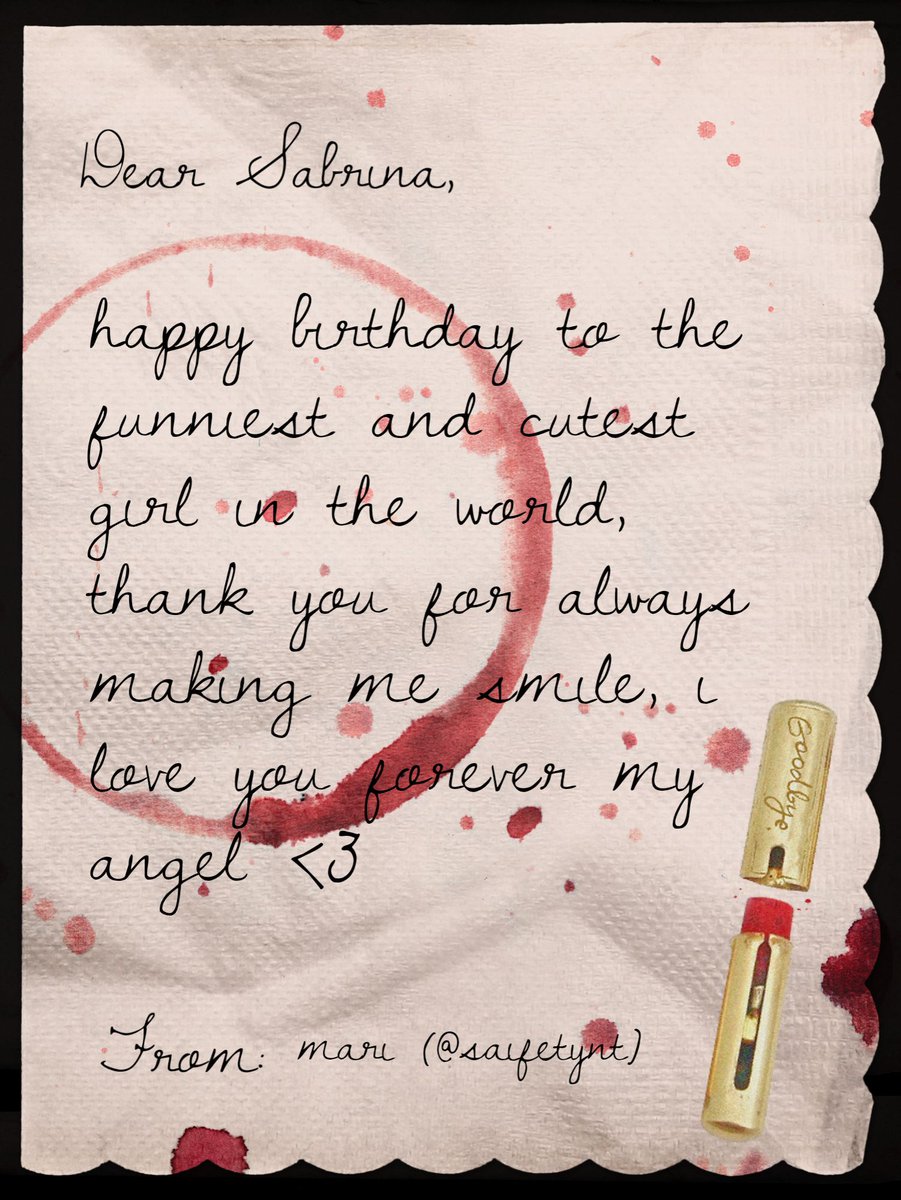 Dear Sabrina,
happy birthday to the
funniest and cutest
girl in the world,
thank you for always
making me smile, i
love you forever my
angel <3
Goodbye.
From: mari (@saifetynt)